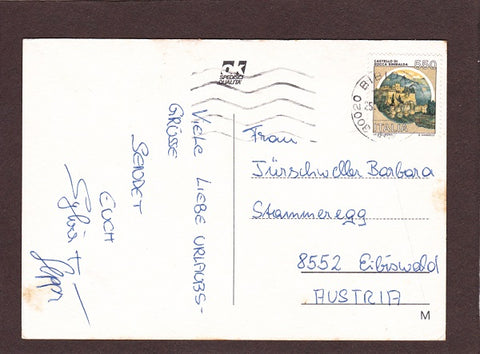 SPEDISCI
QUALITA'
CASTELLO DI
ROCCA SINIBALDA
550
ITALIA
30020 BI
25.
VIELE LIEBE URLAUBS-
GRÜSSE
SENDET
EUCH
Sylvia +
Sepp
Frau
Jürschweller Barbara
Stammeregg
8552 Eibiswald
AUSTRIA
M